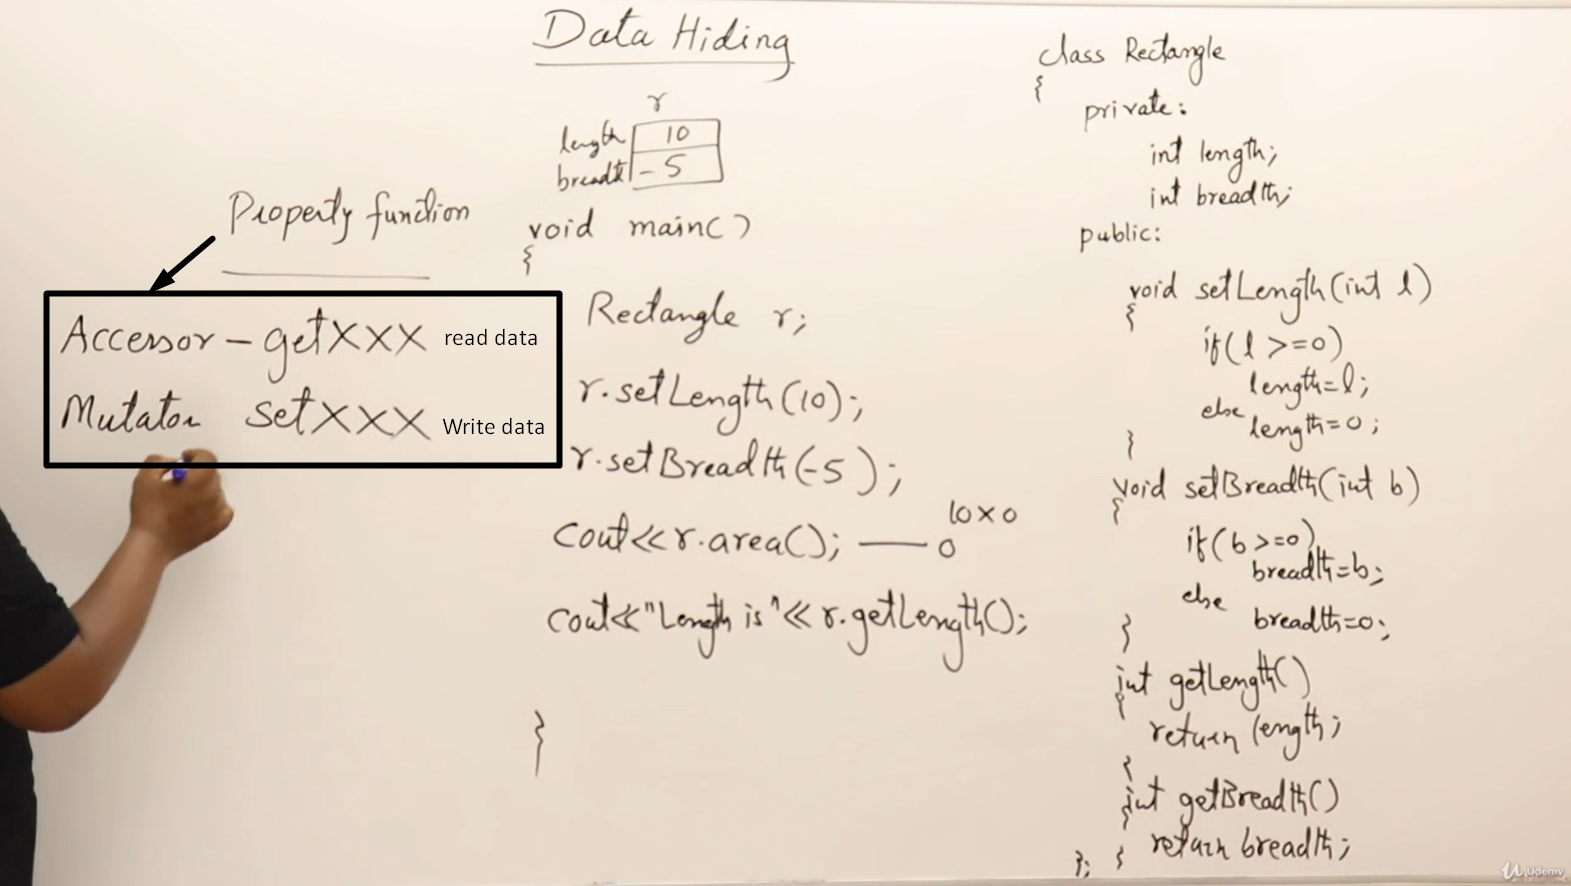 Data Hiding
r
length 10
breadth -5
Property function
Accessor - getXXX read data
Mutator setXXX Write data
void main()
{
Rectangle r;
r.setLength(10);
r.setBreadth(-5);
10 x 0
cout<<r.area(); — 0
cout<<"Length is"<< r.getLength();
}
class Rectangle
{
private:
int length;
int breadth;
public:
void setLength(int l)
{
if(l >=0)
length=l;
else
length=0;
}
void setBreadth(int b)
{
if(b >=0)
breadth=b;
else
breadth=0;
}
int getLength()
{
return length;
}
int getBreadth()
{
return breadth;
}
};
Udemy